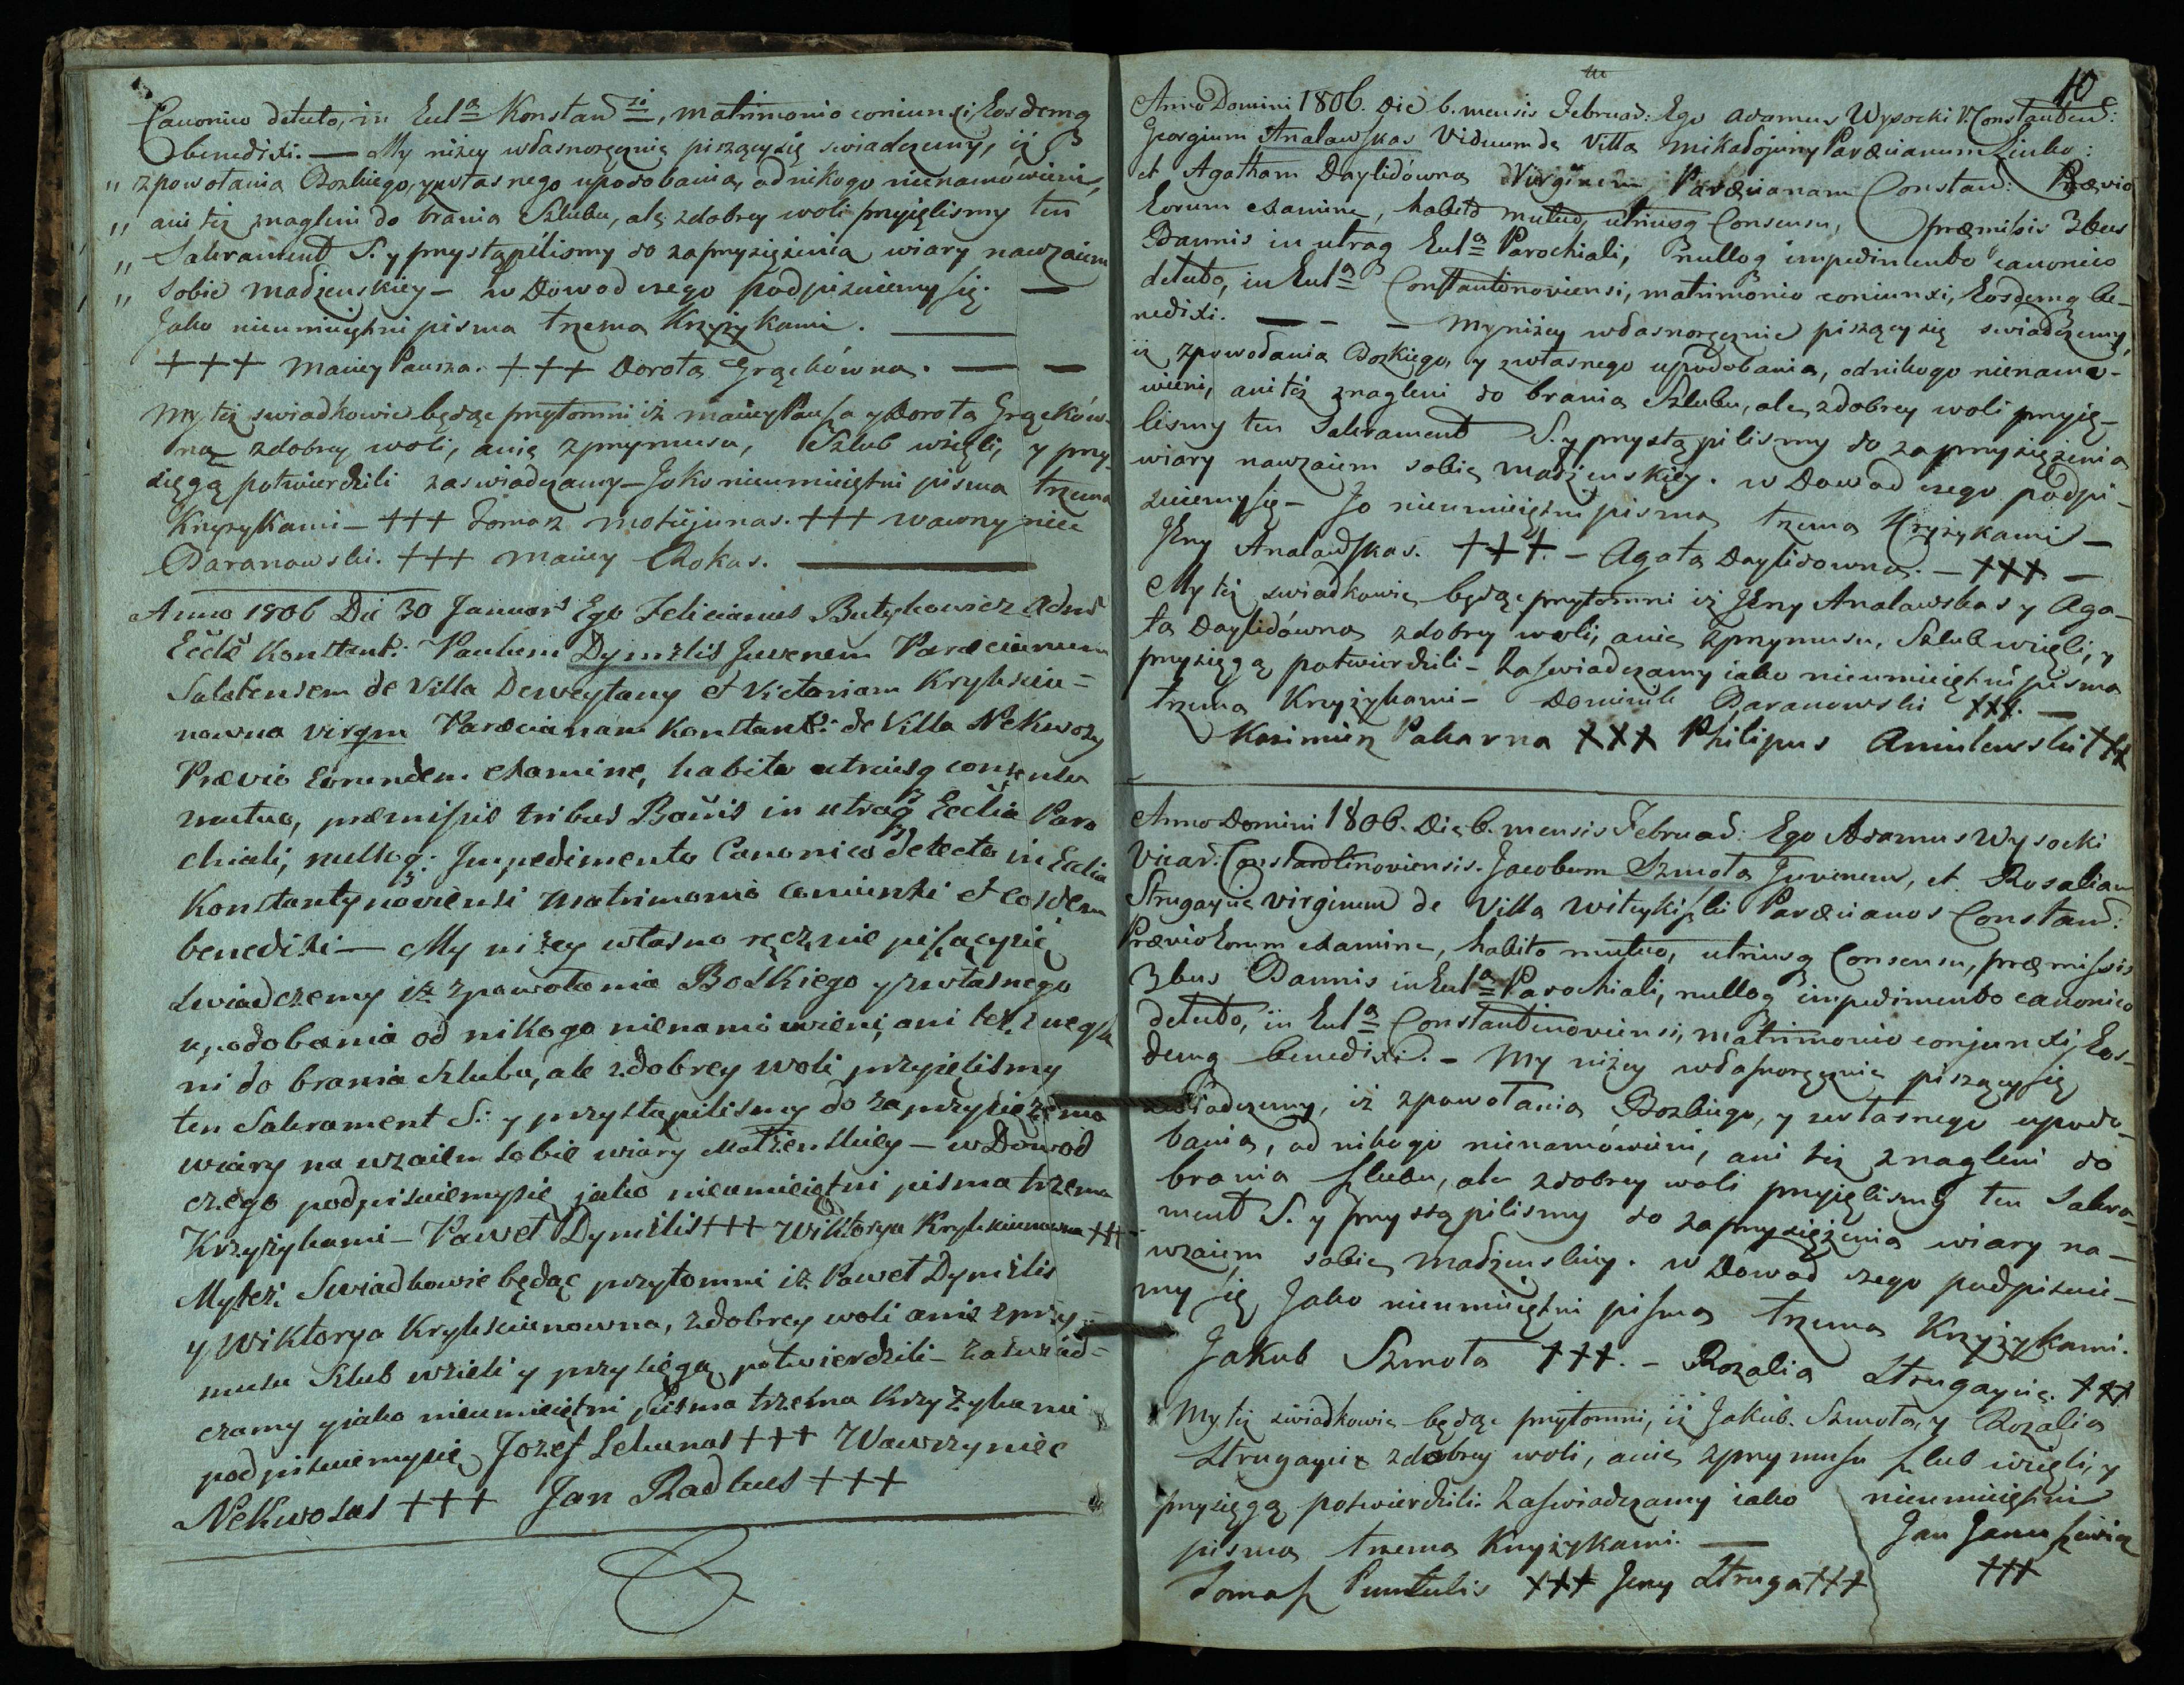 Canonico detecto, in Eccl<u>a</u> Konstan<u>si</u>, matrimonio coniunxi, Eosdemq
benedixi. — My niżey własnoręcznie piszący się swiadczemy, iż
" zpowołania Bozkiego, y własnego upodobania, od nikogo nienamówieni,
" ani też znagleni do brania Szlubu, ale zdobrey woli przyięlismy ten
" Sakrament S. y przystąpilismy do zaprzysiężenia wiary nawzaiem
" sobie Madżenskiey – w Dowod czego podpisuiemy się. —
Jako nieumieiętni pisma trzema Krzyżykami. —
+++ Maciey Pausza. +++ Dorota Grąckówna. — —
My też swiadkowie będąc przytomni iż Maciey Pausza y Dorota Grąckow-
na zdobrey woli, anie zprzymusu, Szlub wzięli, y przy-
sięgą potwierdzili zaswiadczamy – Jako nieumieiętni pisma trzema
Krzyżykami – +++ Tomasz Motiejunas. +++ Wawrzyniec
Baranowski. +++ Maciey Rokas. —
Anno 1806 Die 30 Januar Ego Felicianus Butykowicz Adm
Eccle Konstant: Paulum Dymszlis Juvenem Paraecianum
Salatensem de Villa Deweytany et Victoriam Kryksciu=
nowna virgm Paraecianam Konstant: de Villa Nekwozy
Praevio Eorundem examine, habito utriusq consensu
mutuo, praemissis tribus Bannis in utraq Ecclia Paro
chiali, nulloq: Impedimento Canonico detecto in Ecclia
Konstantynoviensi matrimonio coniunxi et eosdem
benedixi — My niżey własno ręcznie piszący się
swiadczemy iż zpowołania Boskiego y zwłasnego
upodobania od nikogo nienamowieni, ani też znagle
ni do brania szlubu, ale zdobrey woli przyięlismy
ten Sakrament S: y przystąpilismy do zaprzysiężenia
wiary na wzaiem sobie wiary Małżenskiey – w Dowod
czego podpisuiemysie jako nieumieiętni pisma trzema
Krzyżykami – Paweł Dymszlis +++ Wiktorya Kryksciunowna +++
My też Swiadkowie będąc przytomni iż Paweł Dymszlis
y Wiktorya Kryksciunowna, zdobrey woli anie zprzy=
musu Szlub wzieli y przysięgą potwierdzili – zaswiad=
czamy y jako nieumieiętni Pisma trzema Krzyżykami
podpisuiemysie Jozef Lekunas +++ Wawrzyniec
Nekwosas +++ Jan Radkus +++
10
Anno Domini 1806. Die 6. mensis Februar: Ego Adamus Wysocki V. Constantino:
Georgium Analawskas Viduum de Villa Mikadojuny Paraecianum Linko:
et Agatham Daylidówna Virginem Paraecianam Constan: Praevio
Eorum examine, habito mutuo, utriusq Consensu, praemissis 3bus
Bannis in utraq Eccl<u>a</u> Parochiali, nulloq impedimento canonico
detecto, in Eccl<u>a</u> Constantinoviensi, matrimonio coniunxi, Eosdemq be-
nedixi. — – – My niżey własnoręcznie piszący się swiadczemy,
iż zpowołania Bozkiego, y zwłasnego upodobania, od nikogo nienamo-
wieni, ani też znagleni do brania Szlubu, ale zdobrey woli przyię-
lismy ten Sakrament S. y przystąpilismy do zaprzysiężenia
wiary nawzaiem sobie Madżenskiey. w Dowod czego podpi-
suiemy się – Jo nieumieiętni pisma trzema Krzyżykami –
Jerzy Analawskas. +++ – Agata Daylidowna. – +++ –
My też swiadkowie będąc przytomni iż Jerzy Analawskas y Aga-
ta Daylidówna zdobry woli, anie zprzymusu, Szlub wzięli, y
przysięgą potwierdzili – Zaswiadczamy iako nieumieiętni pisma
trzema Krzyżykami – Dominik Baranowski +++. —
Kazimierz Paharna +++ Philipus Amilewski +++
Anno Domini 1806. Die 6. mensis Februar: Ego Adamus Wysocki
Vicar: Constantinoviensis. Jacobum Szmota Juvenem, et Rosaliam
Strugayцie virginem de Villa Witeykiszki Paraecianos Constan:
Praevio Eorum examine, habito mutuo, utriusq Consensu, praemissis
3bus Bannis in Eccl<u>a</u> Parochiali, nulloq impedimento canonico
detecto, in Eccl<u>a</u> Constantinoviensi, matrimonio conjunxi, Eos-
demq benedixi. – My niżey własnoręcznie piszący się
swiadczemy, iż zpowołania Bozkiego, y własnego upodo-
bania, od nikogo nienamówieni, ani też znagleni do
brania szlubu, ale zdobrey woli przyięlismy ten Sakra-
ment S. y przystąpilismy do zaprzysiężenia wiary na-
wzaiem sobie Madżenskiey. w Dowod czego podpisuie-
my się Jako nieumieiętni pisma trzema Krzyżykami.
Jakub Szmota +++. – Rozalia Strugaycie. +++
My też swiadkowie będąc przytomni, iż Jakub. Szmota, y Rozalia
Strugaycie zdobrey woli, anie zprzymusu szlub wzięli, y
przysięgą potwierdzili. Zaswiadczamy iako nieumieiętni
pisma trzema Krzyżykami. — Jan Januszewicz
Tomasz Puntulis +++ Jerzy Struga +++ +++